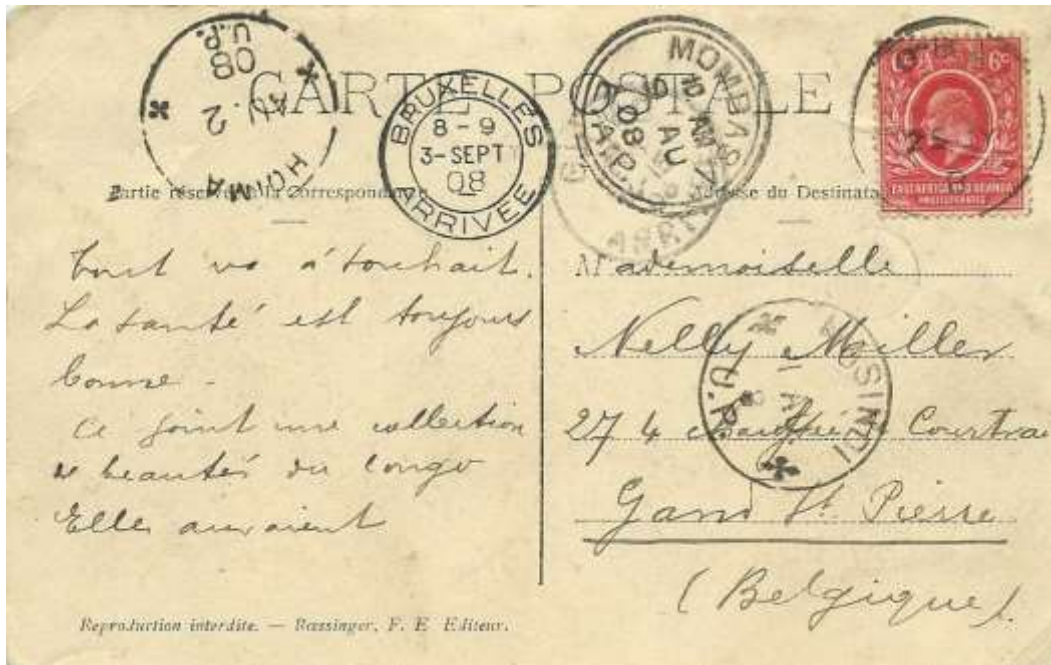 CARTE POSTALE
HOIMA
AU 2
08
U.P.
BRUXELLES
8 - 9
3-SEPT
08
ARRIVÉE
MOMBASA
10 AM
AU
08
6c
EAST AFRICA AND UGANDA
PROTECTORATES
Partie réservée à la Correspondance
Adresse du Destinata
Tout va à souhait.
La santé est toujours
bonne -
Ci joint une collection
beautés du Congo
Elles auraient
Mademoiselle
Nelly Miller
274 Courtrai
Gand St. Pierre
(Belgique).
MASINDI
U.P.
Reproduction interdite. — Rœssinger, F. E Editeur.